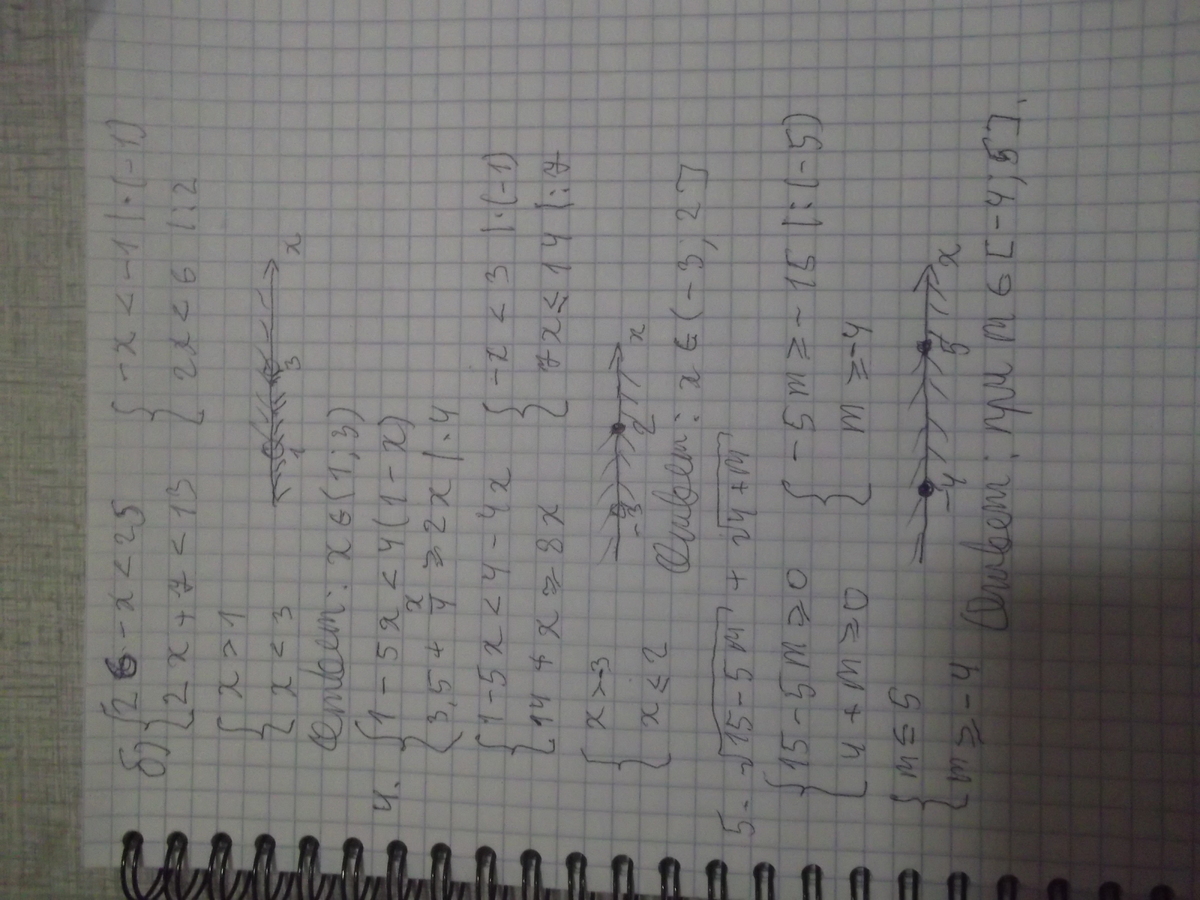 б) { 26 - x < 25 { -x < -1 | · (-1)
{ 2x + 7 < 13 { 2x < 6 | : 2
{ x > 1
{ x < 3
1 3 x
Ответ: x ∈ (1; 3)
4. { 1 - 5x < 4(1 - x)
{ 3,5 + x/4 ≥ 2x | · 4
{ 1 - 5x < 4 - 4x { -x < 3 | · (-1)
{ 14 + x ≥ 8x { 7x ≤ 14 | : 7
{ x > -3
{ x ≤ 2
-3 2 x
Ответ: x ∈ (-3; 2]
5. √15 - 5m + √4 + m
{ 15 - 5m ≥ 0 { -5m ≥ -15 | : (-5)
{ 4 + m ≥ 0 { m ≥ -4
{ m ≤ 5
{ m ≥ -4
-4 5 x
Ответ: при m ∈ [-4; 5].